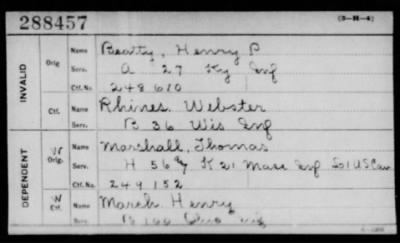 288457
(3-H-4)
INVALID
Orig.
Name Beatty, Henry P
Serv. A 27 Ky Inf
Ctf.No. 248610
Ctf.
Name Rhines Webster
Serv. B 36 Wis Inf
DEPENDENT
W Orig.
Name Marshall, Thomas
Serv. H 56 & K 21 Mass Inf
Ctf.No. 249152
W Ctf.
Name Marsh Henry
Serv. B 166 Ohio Inf